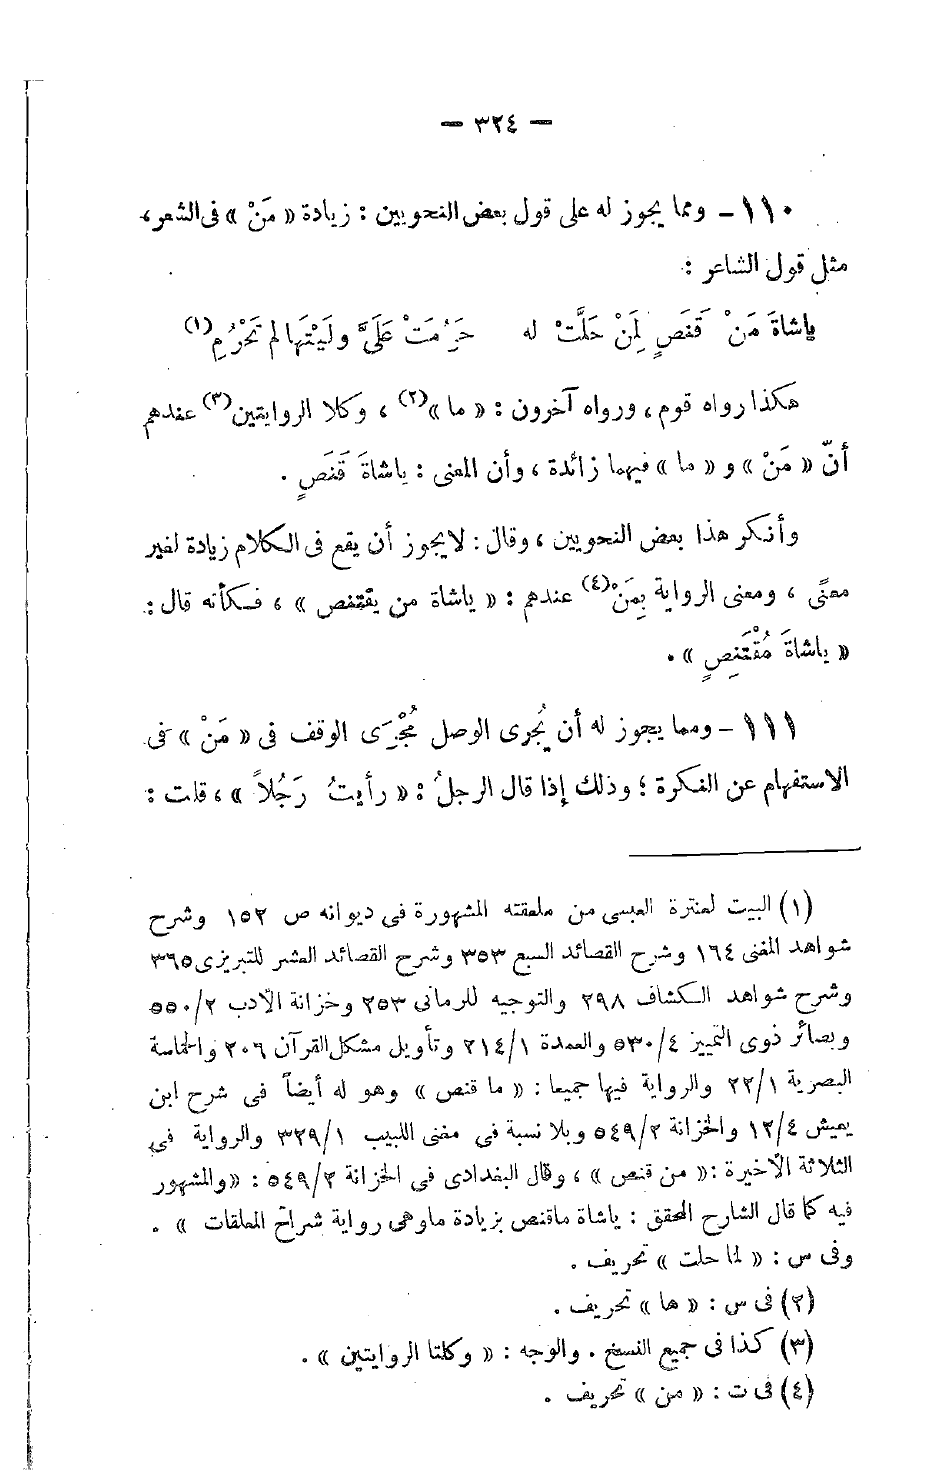 — ٣٢٤ —
١١٠ – ومما يجوز له على قول بعض النحويين : زيادة « مَنْ » فى الشعر ،
مثل قول الشاعر :
ياشاةَ مَنْ قَنَصٍ لِمَنْ حَلَّتْ له حَرُمَتْ عَلَىَّ ولَيْتَهَا لم تَحْرُمِ(١)
هكذا رواه قوم ، ورواه آخرون : « ما »(٢) ، وكلا الروايتين(٣) عندهم
أنّ « مَنْ » و « ما » فيهما زائدة ، وأن المعنى : ياشاةَ قَنَصٍ .
وأنكر هذا بعض النحويين ، وقال : لايجوز أن يقع فى الكلام زيادة لغير
معنًى ، ومعنى الرواية بِمَنْ(٤) عندهم : « ياشاة من يقتنص » ، فكأنه قال :
« ياشاةَ مُقْتَنِصٍ » .
١١١ – ومما يجوز له أن يُجرى الوصل مُجْرَى الوقف فى « مَنْ » فى
الاستفهام عن النكرة ؛ وذلك إذا قال الرجلُ : « رأيتُ رَجُلاً » ، قلت :
(١) البيت لعنترة العبسى من معلقته المشهورة فى ديوانه ص ١٥٢ وشرح
شواهد المغنى ١٦٤ وشرح القصائد السبع ٣٥٣ وشرح القصائد العشر للتبريزى ٣٦٥
وشرح شواهد الكشاف ٢٩٨ والتوجيه للرمانى ٢٥٣ وخزانة الأدب ٢/٥٥٠
وبصائر ذوى التمييز ٤/٥٣٠ والعمدة ١/٢١٤ وتأويل مشكل القرآن ٢٠٦ والحماسة
البصرية ١/٢٢ والرواية فيها جميعا : « ما قنص » وهو له أيضاً فى شرح ابن
يعيش ٤/١٢ والخزانة ٢/٥٤٩ وبلا نسبة فى مغنى اللبيب ١/٣٢٩ والرواية فى
الثلاثة الأخيرة : « من قنص » ، وقال البغدادى فى الخزانة ٢/٥٤٩ : «والمشهور
فيه كما قال الشارح المحقق : ياشاة ماقنص بزيادة ماوهى رواية شراح المعلقات » .
وفى س : « لما حلت » تحريف .
(٢) فى س : « ها » تحريف .
(٣) كذا فى جميع النسخ . والوجه : « وكلتا الروايتين » .
(٤) فى ت : « من » تحريف .